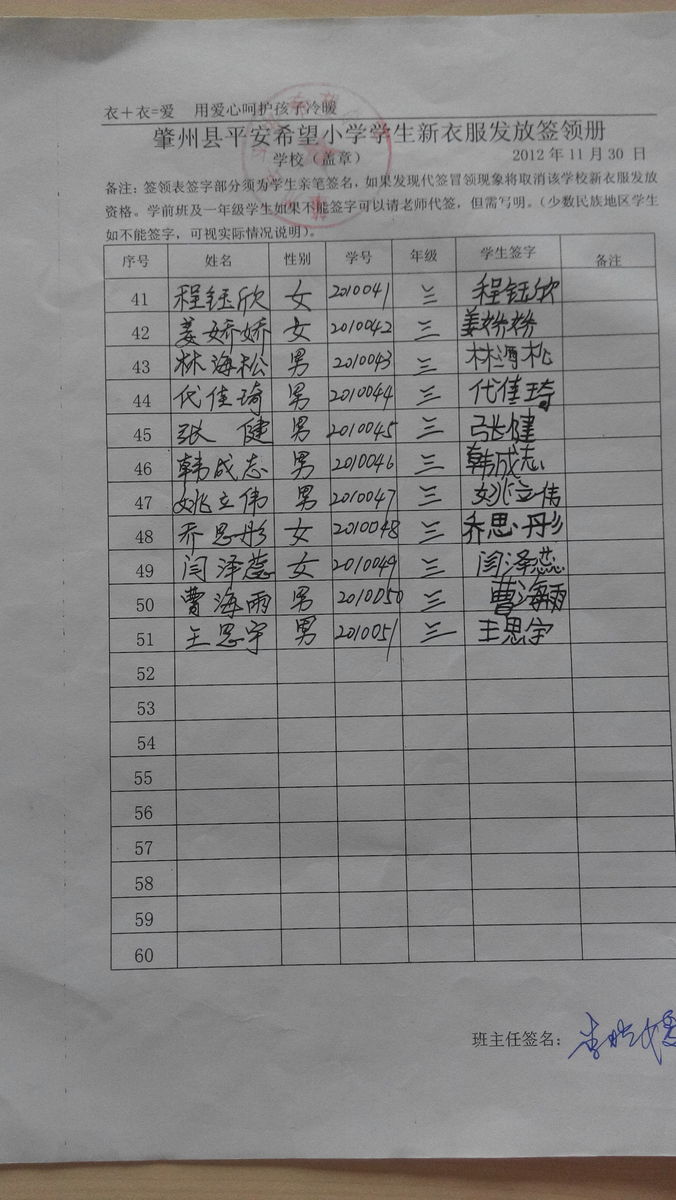 衣＋衣=爱 用爱心呵护孩子冷暖
肇州县平安希望小学学生新衣服发放签领册
学校（盖章） 2012 年 11 月 30 日
备注：签领表签字部分须为学生亲笔签名，如果发现代签冒领现象将取消该学校新衣服发放
资格。学前班及一年级学生如果不能签字可以请老师代签，但需写明。（少数民族地区学生
如不能签字，可视实际情况说明）。
序号 姓名 性别 学号 年级 学生签字 备注
41 程钰欣 女 2010041 三 程钰欣
42 姜娇娇 女 2010042 三 姜娇娇
43 林海松 男 2010043 三 林海松
44 代佳琦 男 2010044 三 代佳琦
45 张健 男 2010045 三 张健
46 韩成志 男 2010046 三 韩成志
47 姚立伟 男 2010047 三 姚立伟
48 乔思彤 女 2010048 三 乔思彤
49 闫泽蕊 女 2010049 三 闫泽蕊
50 曹海雨 男 2010050 三 曹海雨
51 王思宇 男 2010051 三 王思宇
52
53
54
55
56
57
58
59
60
班主任签名：